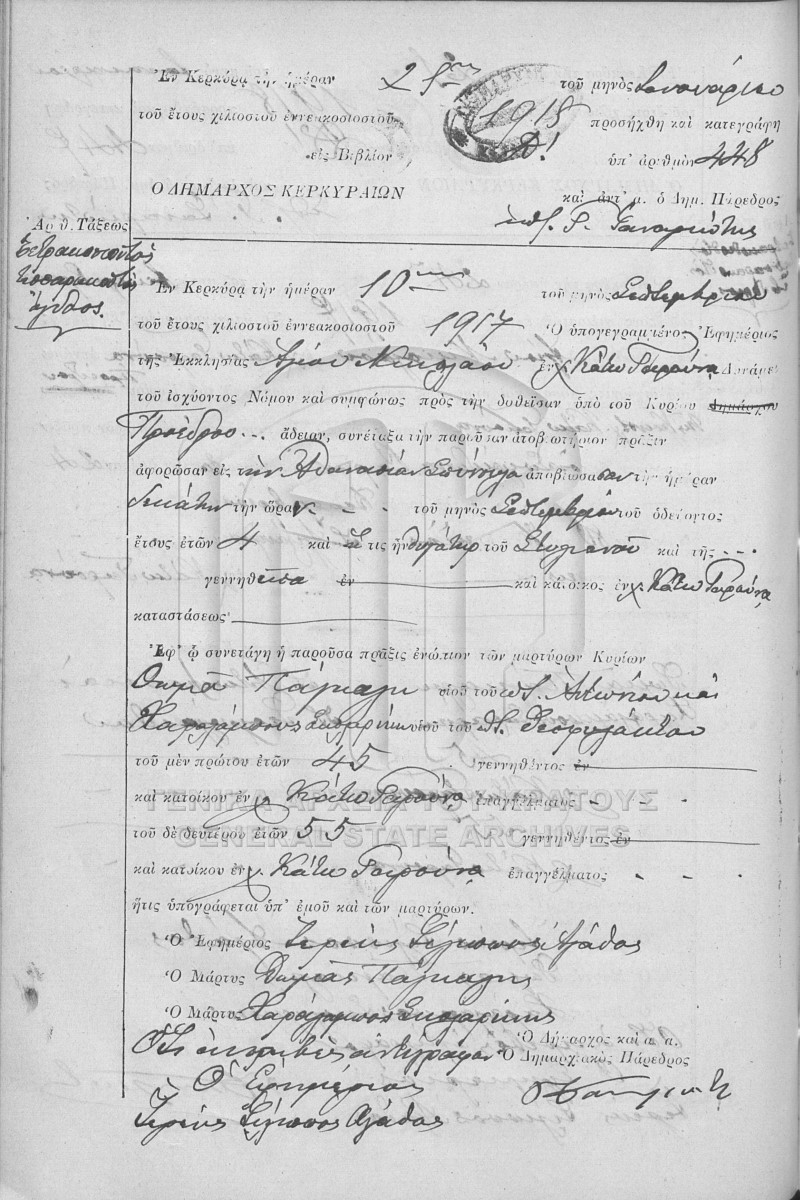 Ἐν Κερκύρᾳ τὴν ἡμέραν 25ην τοῦ μηνὸς Ἰανουαρίου
τοῦ ἔτους χιλιοστοῦ ἐννεακοσιοστοῦ 1918 προσήχθη καὶ κατεγράφη
εἰς Βιβλίον Δ! ὑπ' ἀριθμὸν 448
Ο ΔΗΜΑΡΧΟΣ ΚΕΡΚΥΡΑΙΩΝ
καὶ ἀντ' α. ὁ Δημ. Πάρεδρος
Ἀριθ. Τάξεως
Τετρακοσιοστὸς
τεσσαρακοστὸς
ὄγδοος.
Ἐν Κερκύρᾳ τὴν ἡμέραν 10ην τοῦ μηνὸς Σεπτεμβρίου
τοῦ ἔτους χιλιοστοῦ ἐννεακοσιοστοῦ 1917 Ὁ ὑπογεγραμμένος Ἐφημέριος
τῆς Ἐκκλησίας Ἁγίου Νικολάου ἐν χ. Κάτω Γαρούνᾳ Δυνάμει
τοῦ ἰσχύοντος Νόμου καὶ συμφώνως πρὸς τὴν δοθεῖσαν ὑπὸ τοῦ Κυρίου Δημάρχου
Προέδρου ἄδειαν, συνέταξα τὴν παροῦσαν ἀποβιωτήριον πρᾶξιν
ἀφορῶσαν εἰς τὴν Ἀθανασίαν ἀποβιώσασαν τὴν ἡμέραν
δεκάτην τὴν ὥραν - - τοῦ μηνὸς Σεπτεμβρίου τοῦ ὁδεύοντος
ἔτους ἐτῶν 4 καὶ τις ἦν θυγάτηρ τοῦ Στυλιανοῦ καὶ τῆς - - -
γεννηθεῖσα ἐν καὶ κάτοικος ἐν χ. Κάτω Γαρούνᾳ
καταστάσεως
Ἐφ' ᾧ συνετάγη ἡ παροῦσα πρᾶξις ἐνώπιον τῶν μαρτύρων Κυρίων
Θωμᾶ Πάγκαλη υἱοῦ τοῦ π. Ἀντωνίου καὶ
Χαραλάμπους υἱοῦ τοῦ π. Θεοφυλάκτου
τοῦ μὲν πρώτου ἐτῶν 45 γεννηθέντος ἐν
καὶ κατοίκου ἐν χ. Κάτω Γαρούνᾳ ἐπαγγέλματος - -
τοῦ δὲ δευτέρου ἐτῶν 55 γεννηθέντος ἐν
καὶ κατοίκου ἐν χ. Κάτω Γαρούνᾳ ἐπαγγέλματος - - -
ἥτις ὑπογράφεται ὑπ' ἐμοῦ καὶ τῶν μαρτύρων.
Ὁ Ἐφημέριος Ἱερεὺς Φίλιππος Ἀγάθος
Ὁ Μάρτυς Θωμᾶς Πάγκαλης
Ὁ Μάρτυς Χαράλαμπος
Ὁ Δήμαρχος καὶ α. α.
Ὅτι ἀκριβὲς ἀντίγραφον Ὁ Δημαρχιακὸς Πάρεδρος
Ὁ Ἐφημέριος
Ἱερεὺς Φίλιππος Ἀγάθος
ΓΕΝΙΚΑ ΑΡΧΕΙΑ ΤΟΥ ΚΡΑΤΟΥΣ
GENERAL STATE ARCHIVES